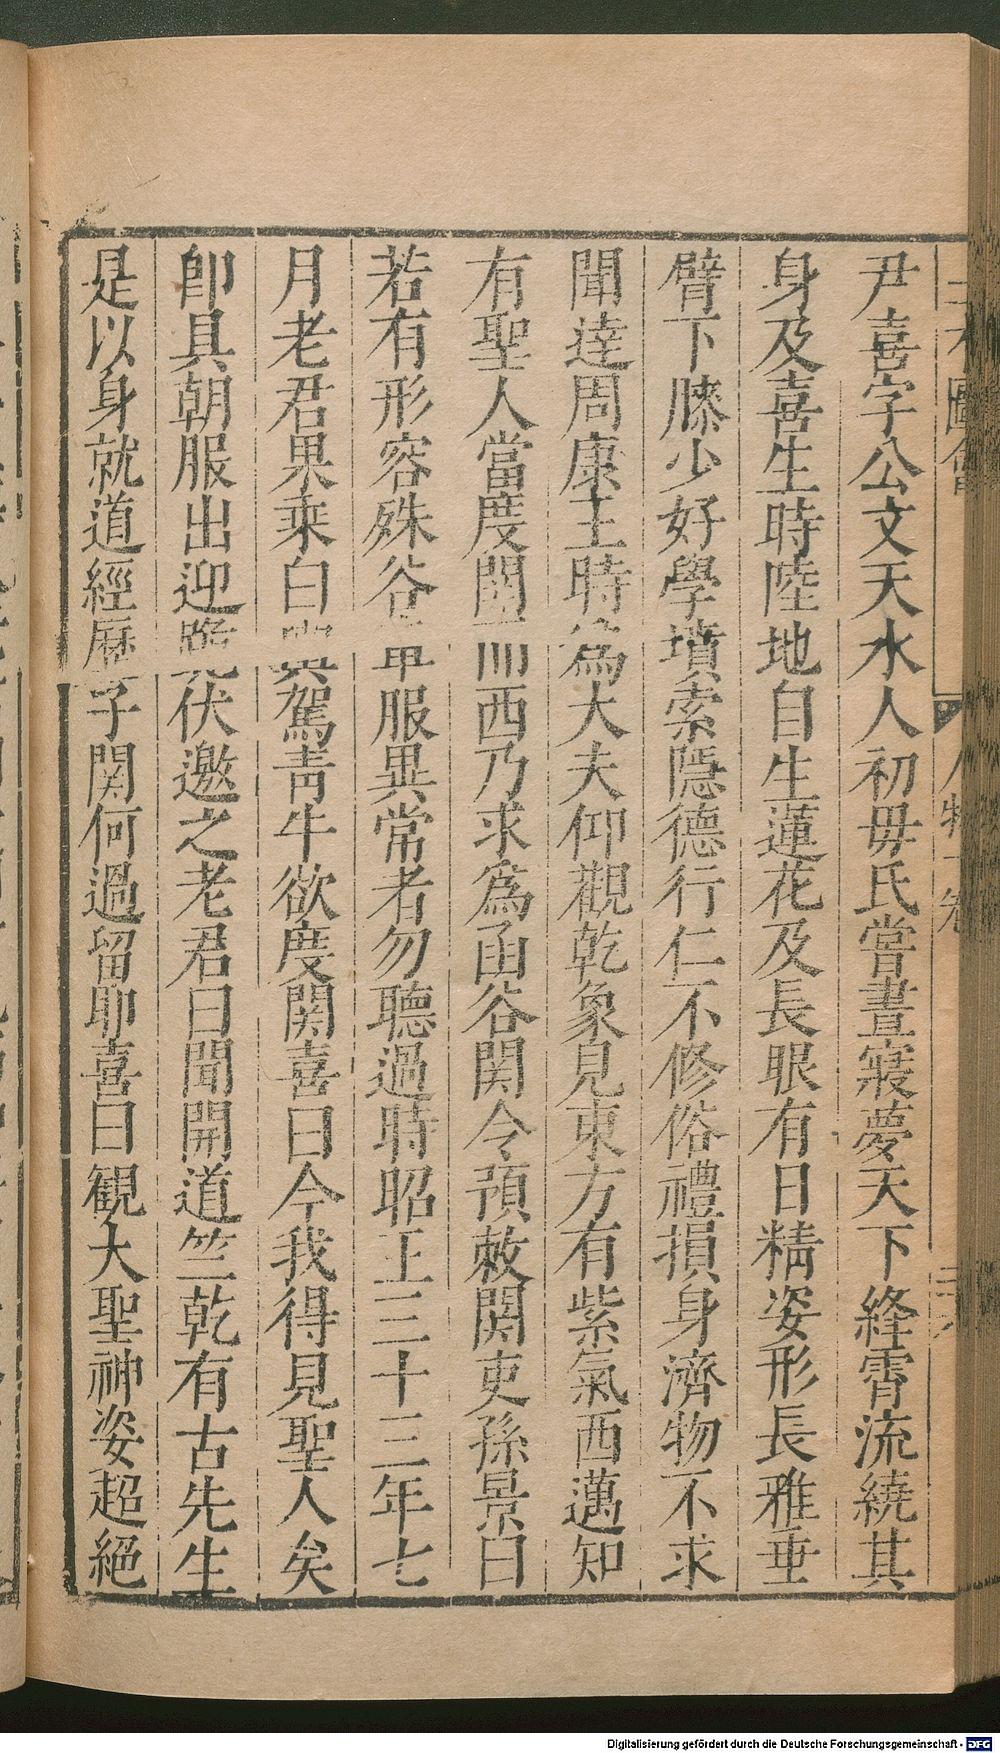 尹喜字公文天水人初毋氏嘗晝寢夢天下絳霄流繞其
身及喜生時陸地自生蓮花及長眼有日精姿形長雅垂
臂下膝少好學墳索隱德行仁不修俗禮損身濟物不求
聞達周康王時爲大夫仰觀乾象見東方有紫氣西邁知
有聖人當度関而西乃求爲函谷関令預敕関吏孫景曰
若有形容殊俗車服異常者勿聽過時昭王二十三年七
月老君果乘白輿駕青牛欲度関喜曰今我得見聖人矣
卽具朝服出迎跪伏邀之老君曰聞開道竺乾有古先生
是以身就道經歷子関何過留耶喜曰観大聖神姿超絕
圖會
人物十卷
Digitalisierung gefördert durch die Deutsche Forschungsgemeinschaft - DFG